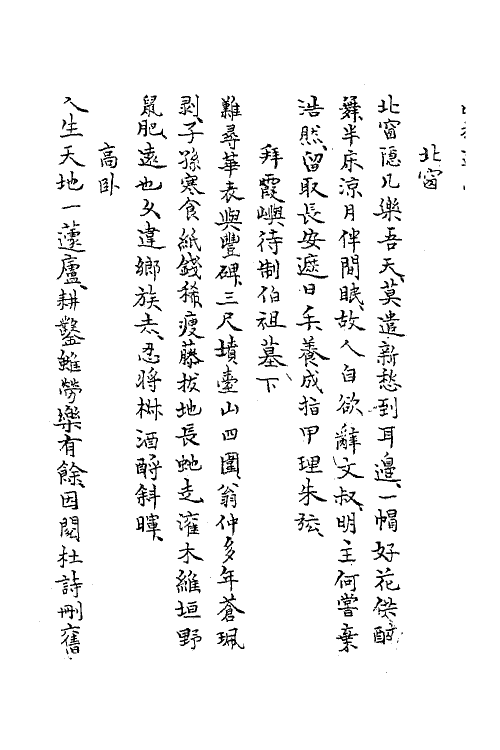 北窗
北窗隱几樂吾天莫遣新愁到耳邊一帽好花供醉
舞半床涼月伴閒眠故人自欲辭文叔明主何嘗棄
浩然留取長安遮日手養成指甲理朱弦
拜霞嶼待制伯祖墓下
難尋華表與豐碑三尺墳臺山四圍翁仲多年蒼珮
剥子孫寒食紙錢稀瘦藤拔地長虵走灌木維垣野
鼠肥遠也久違鄉族去忍將椒酒酹斜暉
高卧
人生天地一蘧廬耕鑿雖勞樂有餘因閱杜詩刪舊